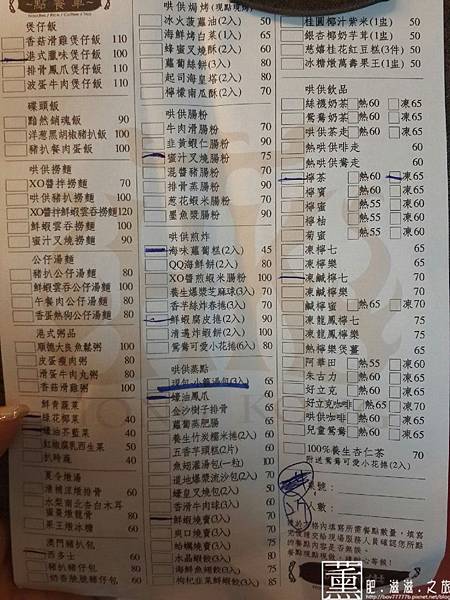 點餐單
煲仔飯
香菇滑雞煲仔飯 110
港式臘味煲仔飯 110
排骨鳳爪煲仔飯 110
波蛋牛肉煲仔飯 110
碟頭飯
黯然銷魂飯 90
洋蔥黑胡椒豬扒飯 100
豬扒餐肉蛋飯 100
哄供撈麵
XO醬拌撈麵 70
哄供豬扒撈麵 100
XO醬拌鮮蝦雲吞撈麵 120
鮮蝦雲吞撈麵 100
蜜汁叉燒撈麵 100
公仔湯麵
豬扒公仔湯麵 80
鮮蝦雲吞公仔湯麵 80
午餐肉公仔湯麵 80
香蛋熱狗公仔湯麵 80
港式粥品
順德大良魚鬆粥 60
皮蛋瘦肉粥 60
滑蛋牛肉丸粥 60
香菇滑雞粥 60
鮮青蔬菜
綠花椰菜 40
蠔油芥藍菜 40
紅椒腐乳西生菜 50
扒時蔬 40
夏令燉湯
清補涼燉排骨 60
水梨南北杏白木耳
蜜棗燉龍骨 80
果王燉冰糖 60
澳門豬扒包
西多士 60
豬扒豬仔包 60
奶香脆脆豬仔包 60
哄供焗烤(現點現烤)
冰火菠蘿油(2入) 50
海鮮烤白菜(1入) 50
蜂蜜叉燒酥(2入) 50
蘿蔔絲餅(3入) 60
起司海皇塔(2入) 60
檸檬南瓜酥(2入) 50
哄供腸粉
牛肉滑腸粉 70
韭黃蝦仁腸粉 90
蜜汁叉燒腸粉 75
混醬豬腸粉 50
排骨蒸腸粉 70
蔥花蝦米腸粉 70
墨魚漿腸粉 70
哄供煎炸
海味蘿蔔糕(2入) 45
QQ海鮮餅(2入) 80
XO醬煎蝦米腸粉 100
養生爆漿芝麻球(3入) 70
香芋絲炸春捲(3入) 70
鮮蝦腐皮捲(2入) 90
清邁炸蝦餅(2入) 100
鴛鴦可愛小花捲(6入) 80
哄供蒸點
現包小籠湯包(3入) 65
蠔油鳳爪 60
金沙樹子排骨 60
蘿蔔蒸肥腸 60
養生竹炭糯米捲(2入) 50
五香芋頭糕(2片) 50
魚翅灌湯包(一粒) 100
道地爆漿流沙包(2入) 50
蠔皇叉燒包(2入) 50
香滑牛肉球(3入) 60
鮮蝦燒賣(3入) 70
爽口燒賣(3入) 60
蛤蠣燒賣(3入) 60
水晶鮮蝦餃(3入) 80
海鮮魚翅餃(3入) 65
枸杞韭菜鮮蝦餃(3入) 85
桂圓椰汁紫米(1盅) 50
銀杏椰奶芋茸(1盅) 50
慈嬉桂花紅豆糕(3件) 50
冰糖燉萬壽果王(1盅) 50
哄供飲品
絲襪奶茶 熱60 凍65
鴛鴦奶茶 熱60 凍65
哄供茶走 熱60 凍65
熱哄供啡走 60
熱哄供鴦走 60
檸茶 熱60 凍65
檸蜜 熱55 凍60
檸柚 熱55 凍60
菊蜜 熱55 凍60
凍檸七 65
凍檸樂 65
凍鹹檸七 70
凍鹹檸樂 70
鹹檸蜜 熱65 凍70
凍龍鳳檸七 75
凍龍鳳檸樂 75
熱檸樂煲薑 65
阿華田 熱55 凍60
朱古力 熱60 凍65
好立克 熱60 凍65
好立克咖啡 熱60 凍65
哄供咖啡 熱60 凍65
兒童鴛鴦 熱60 凍65
100%養生杏仁茶 70
附送鴛鴦可愛小花捲(2入)
桌號：
人數：
薰
肥.滋滋.之旅